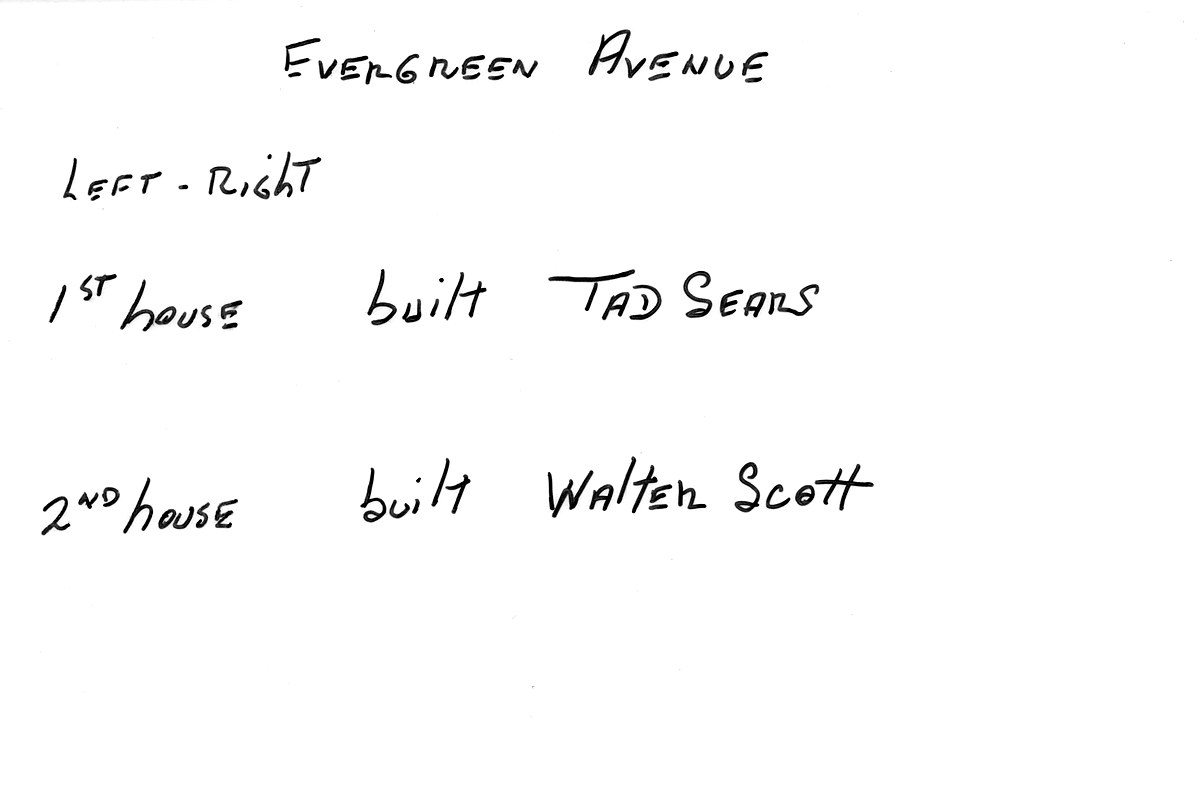 Evergreen Avenue
Left - Right
1st house built Tad Sears
2nd house built Walter Scott